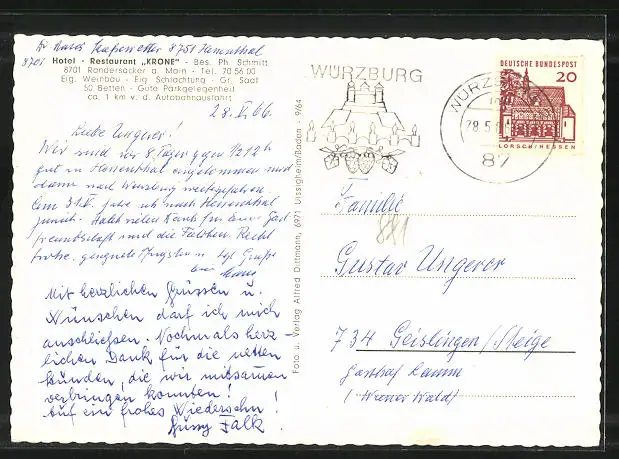 8751
8701 Hotel · Restaurant „KRONE“ - Bes. Ph. Schmitt
8701 Randersacker a. Main - Tel. 70 56 00
Eig. Weinbau - Eig. Schlachtung - Gr. Saal
50 Betten - Gute Parkgelegenheit
ca. 1 km v. d. Autobahnausfahrt
28.V.66.
Liebe Ungerer!
Wir sind vor 8 Tagen gegen 1/2 12 h
gut in angekommen und
dann nach Würzburg weitergefahren.
Am 31.V. fahre ich nach
zurück. Habt vielen Dank für Eure Gast
freundschaft und die Recht
frohe, gesegnete Pfingsten u. Grüße
Euer
Mit herzlichen Grüssen u.
Wünschen darf ich mich
anschließen. Nochmals herz-
lichen Dank für die netten
Stunden, die wir mitsammen
verbringen konnten!
Auf ein frohes Wiedersehn!
Falk.
Foto u. Verlag Alfred Dittmann, 6971 Uissigheim/Baden 9/64
WÜRZBURG
WÜRZBURG
28.5.
87
DEUTSCHE BUNDESPOST
20
LORSCH/HESSEN
Familie
881
Gustav Ungerer
734 Geislingen/Steige
Gasthof Lamm
(Wiener Wald)